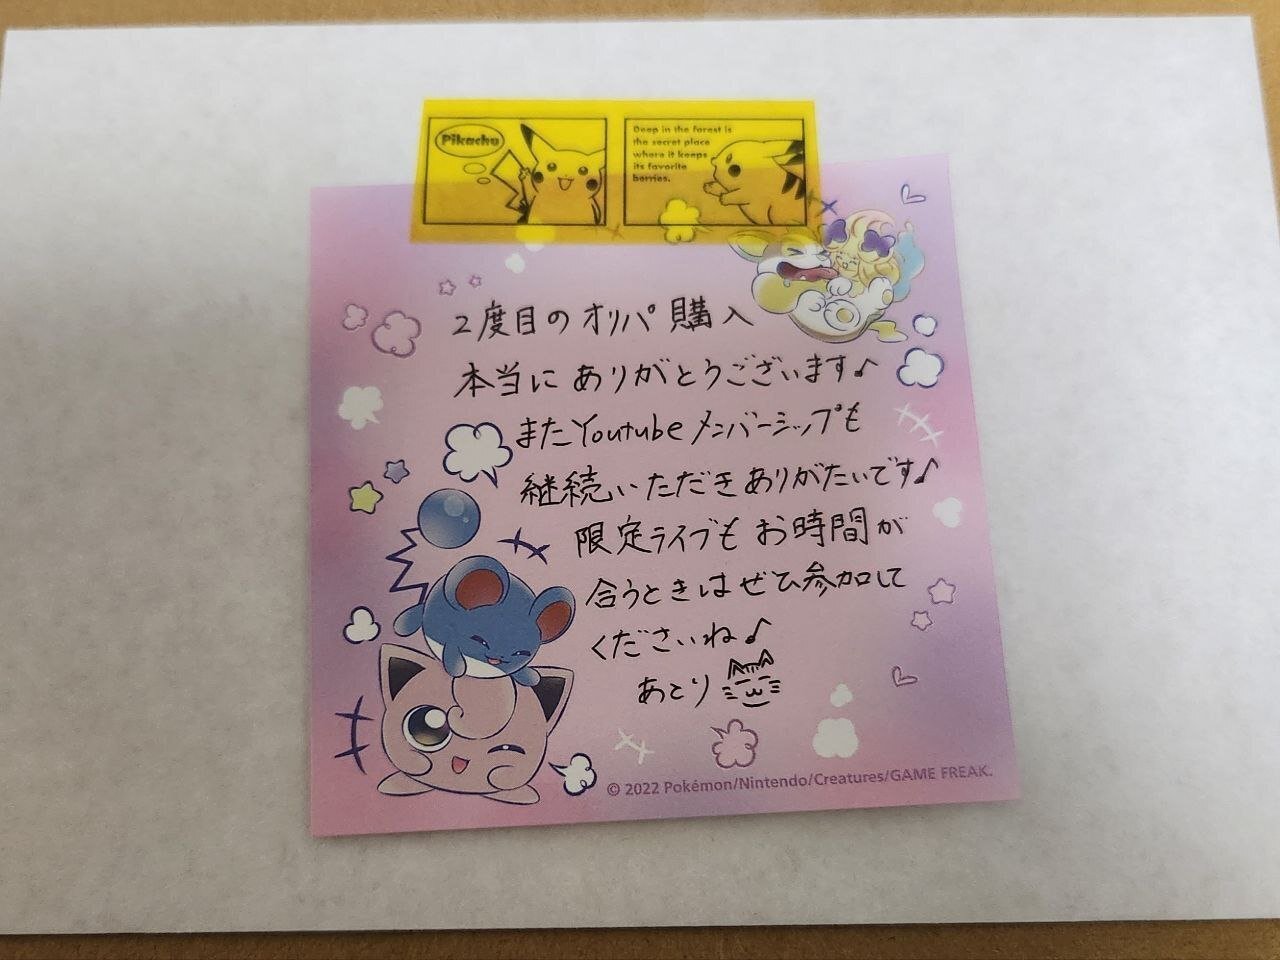 Pikachu
Deep in the forest is
the secret place
where it keeps
its favorite
berries.
2度目のオリパ購入
本当にありがとうございます♪
またYoutubeメンバーシップも
継続いただきありがたいです♪
限定ライブもお時間が
合うときはぜひ参加して
くださいね♪
あとり
© 2022 Pokémon/Nintendo/Creatures/GAME FREAK.